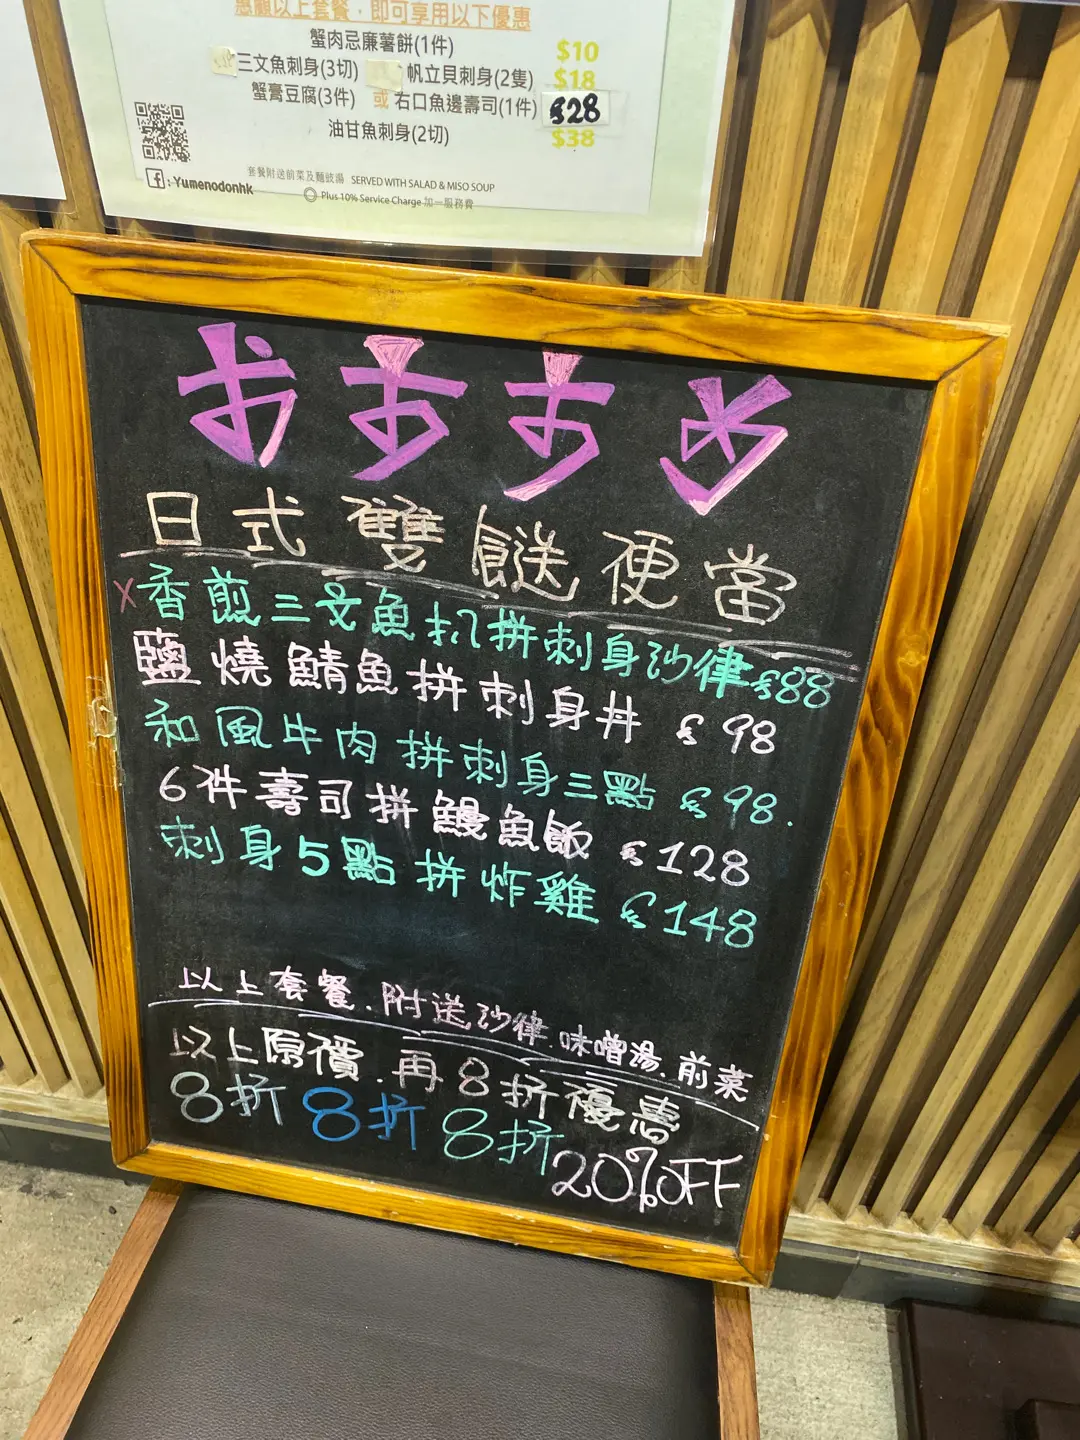 惠顧以上套餐，即可享用以下優惠
蟹肉忌廉薯餅(1件) $10
三文魚刺身(3切) 帆立貝刺身(2隻) $18
蟹膏豆腐(3件) 或右口魚邊壽司(1件) $28
油甘魚刺身(2切) $38
套餐附送前菜及麵豉湯 SERVED WITH SALAD & MISO SOUP
f : Yumenodonhk
Plus 10% Service Charge 加一服務費
おすすめ
日式雙餸便當
x香煎三文魚扒拼刺身沙律$88
鹽燒鯖魚拼刺身丼 $98
和風牛肉拼刺身三點 $98.
6件壽司拼鰻魚飯 $128
刺身5點拼炸雞 $148
以上套餐.附送沙律.味噌湯.前菜
以上原價.再8折優惠
8折 8折 8折 20%OFF